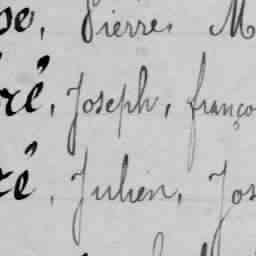 se, Pierre M
ré, Joseph, franço
ré, Julien, Jos